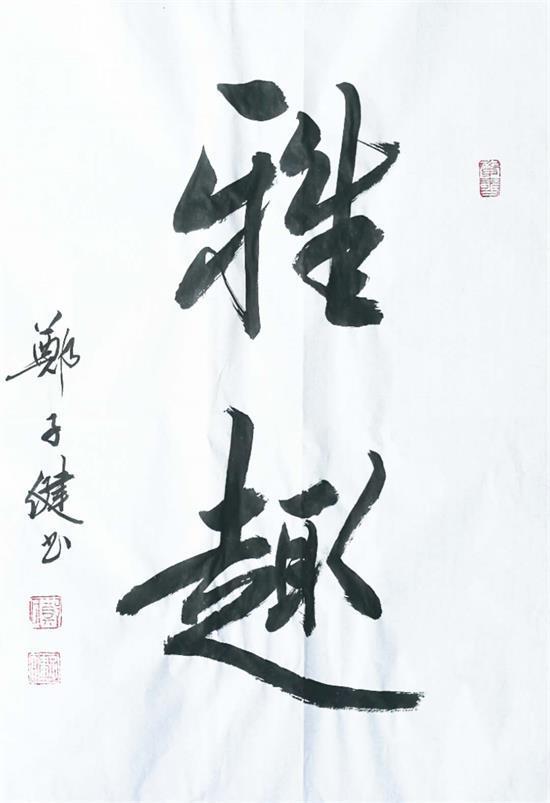 雅趣
鄭子健书